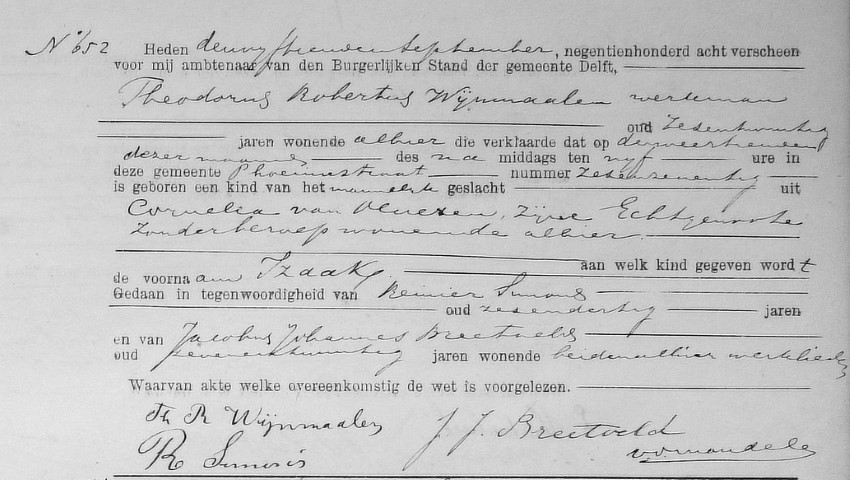 No 652 Heden den vijftienden september, negentienhonderd acht verscheen
voor mij ambtenaar van den Burgerlijken Stand der gemeente Delft,
Theodorus Robertus Wijnmaalen werkman
oud zesentwintig
jaren wonende alhier die verklaarde dat op den veertienden
dezer maand des na middags ten vijf ure in
deze gemeente Phoenixstraat nummer zesenzeventig
is geboren een kind van het mannelijk geslacht uit
Cornelia van Vliezen, zijne Echtgenoote
zonder beroep wonende alhier
aan welk kind gegeven wordt
de voornaam Izaak
Gedaan in tegenwoordigheid van Reinier Simons
oud zesendertig jaren
en van Jacobus Johannes Breetveld
oud zevenentwintig jaren wonende beiden alhier werklieden
Waarvan akte welke overeenkomstig de wet is voorgelezen.
Th R Wijnmaalen
J. J. Breetveld
R Simons